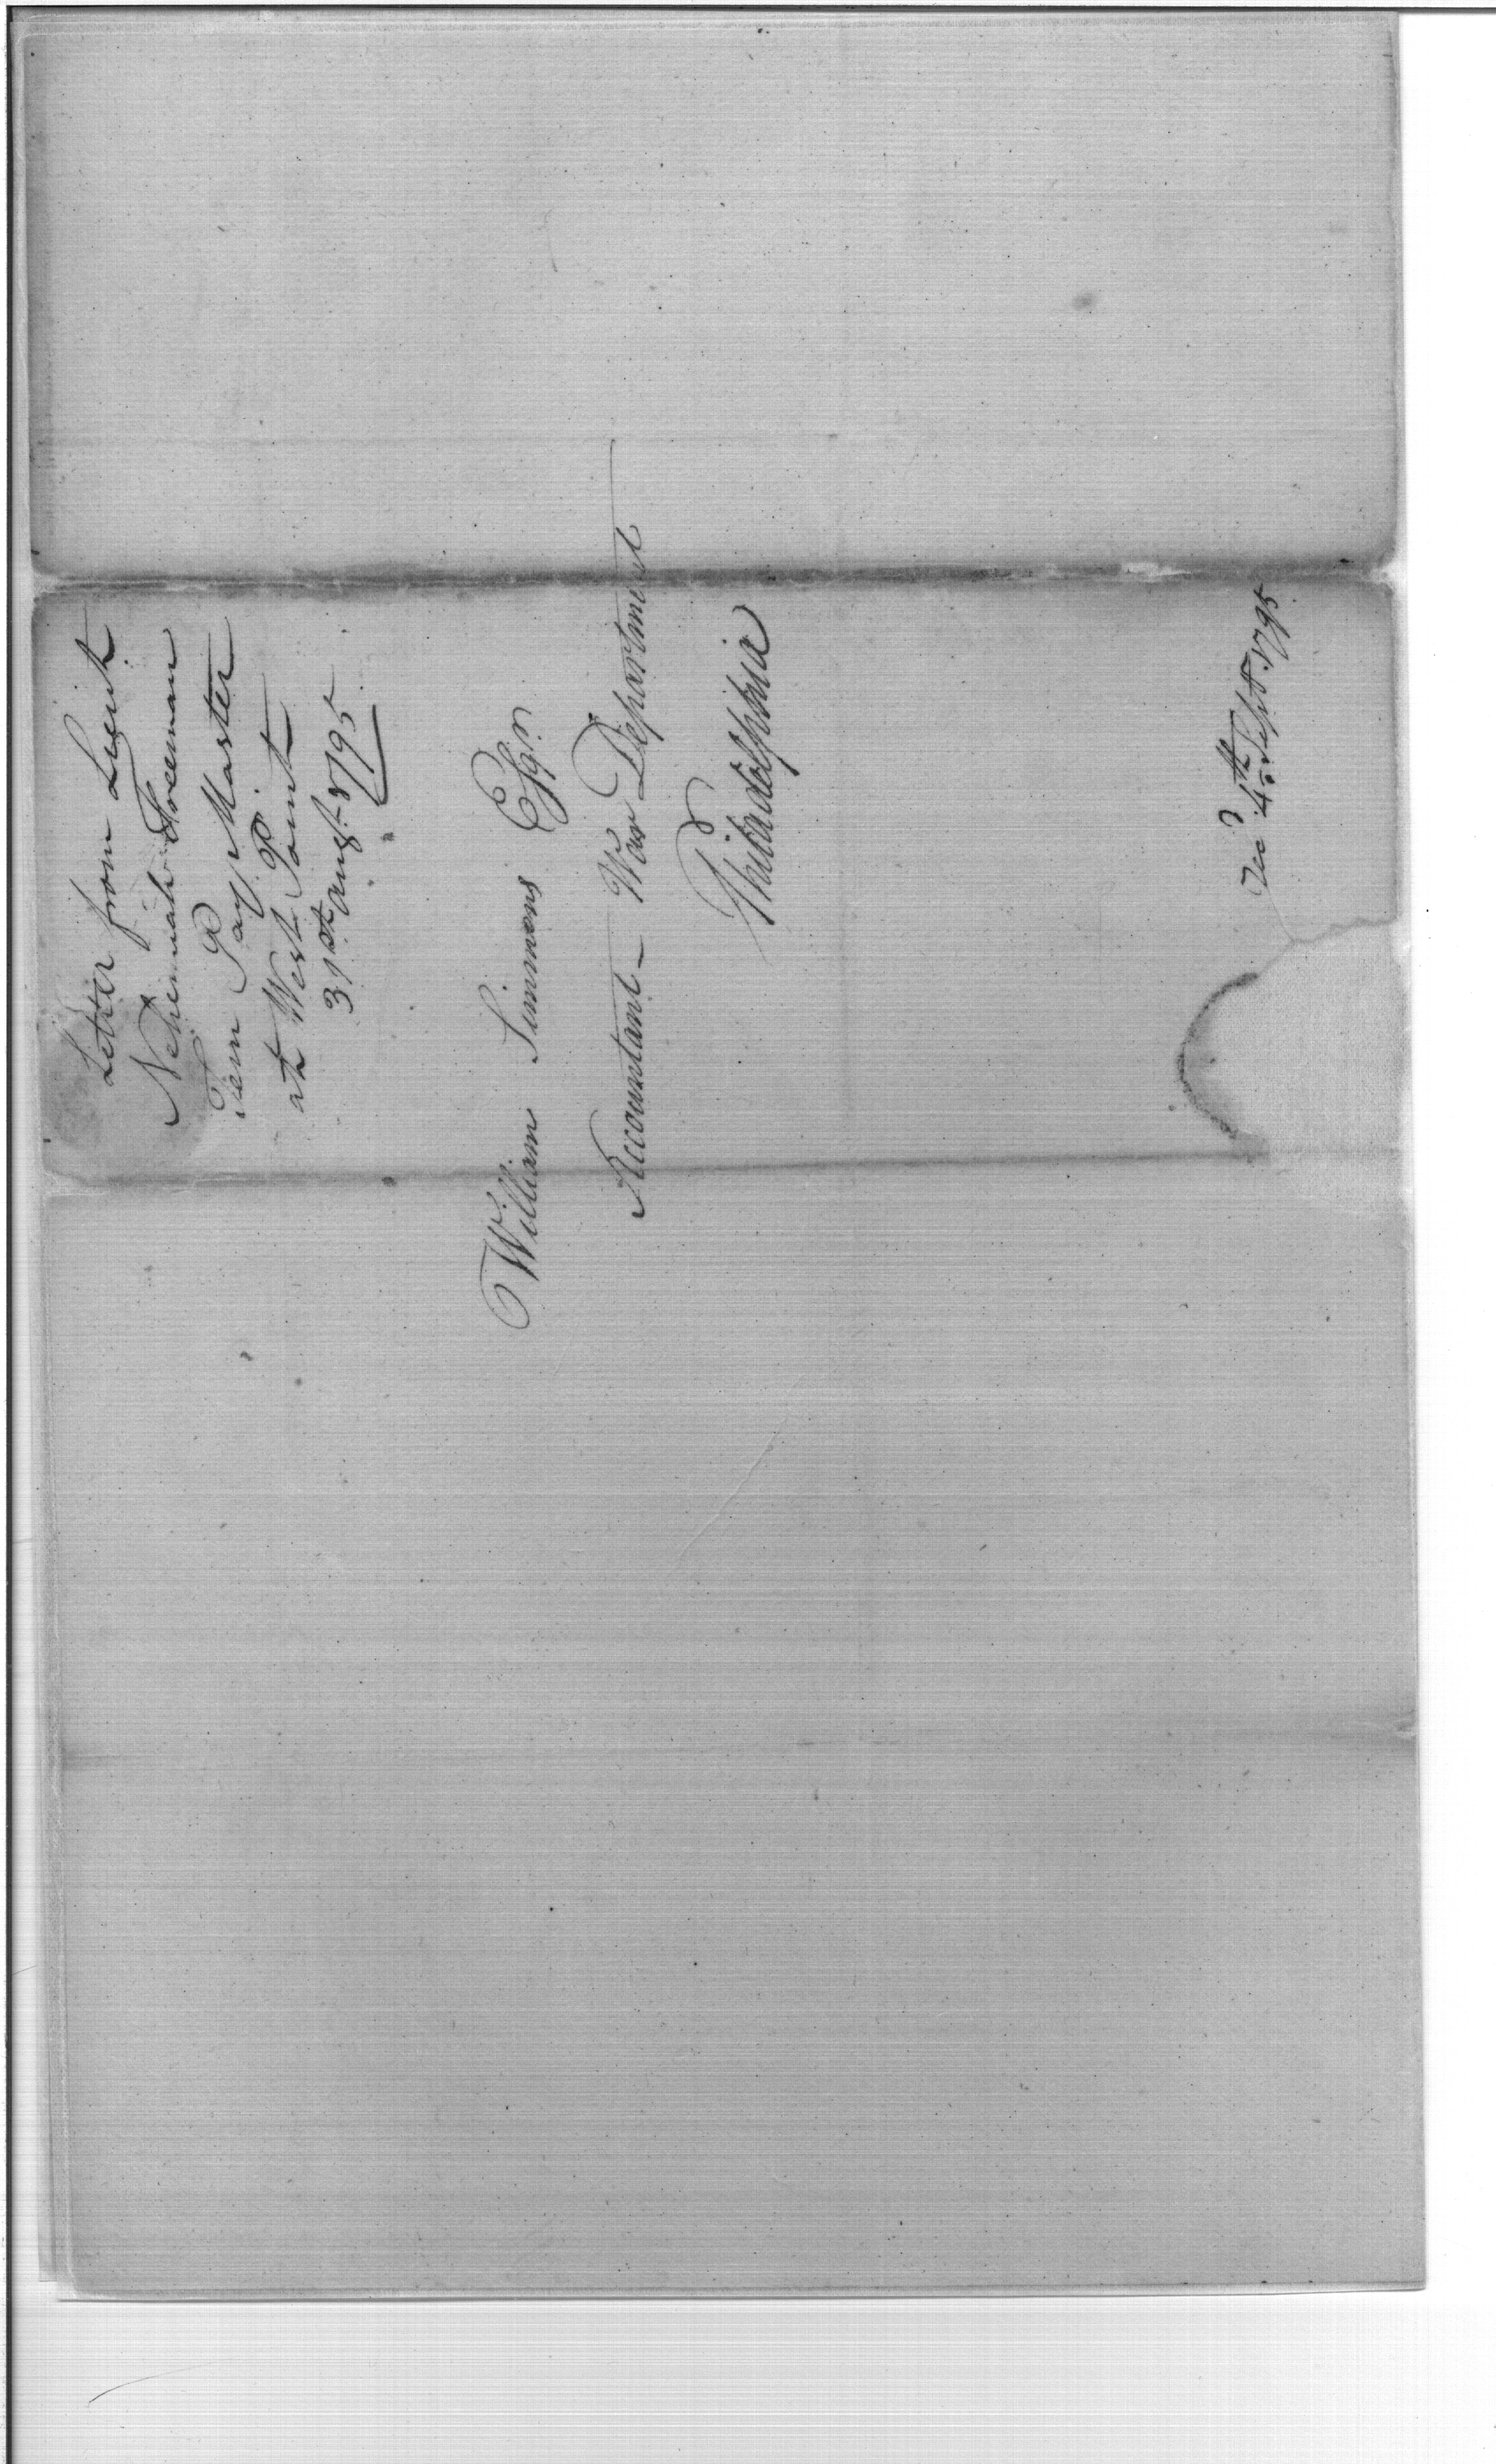 Letter from Lieut
Nehemiah Freeman
Tem Pay Master
at West Point
31st Augt 1795
William Simmons Esqr.
Accountant - War Department
Philadelphia
Rec'd 4th Sept. 1795